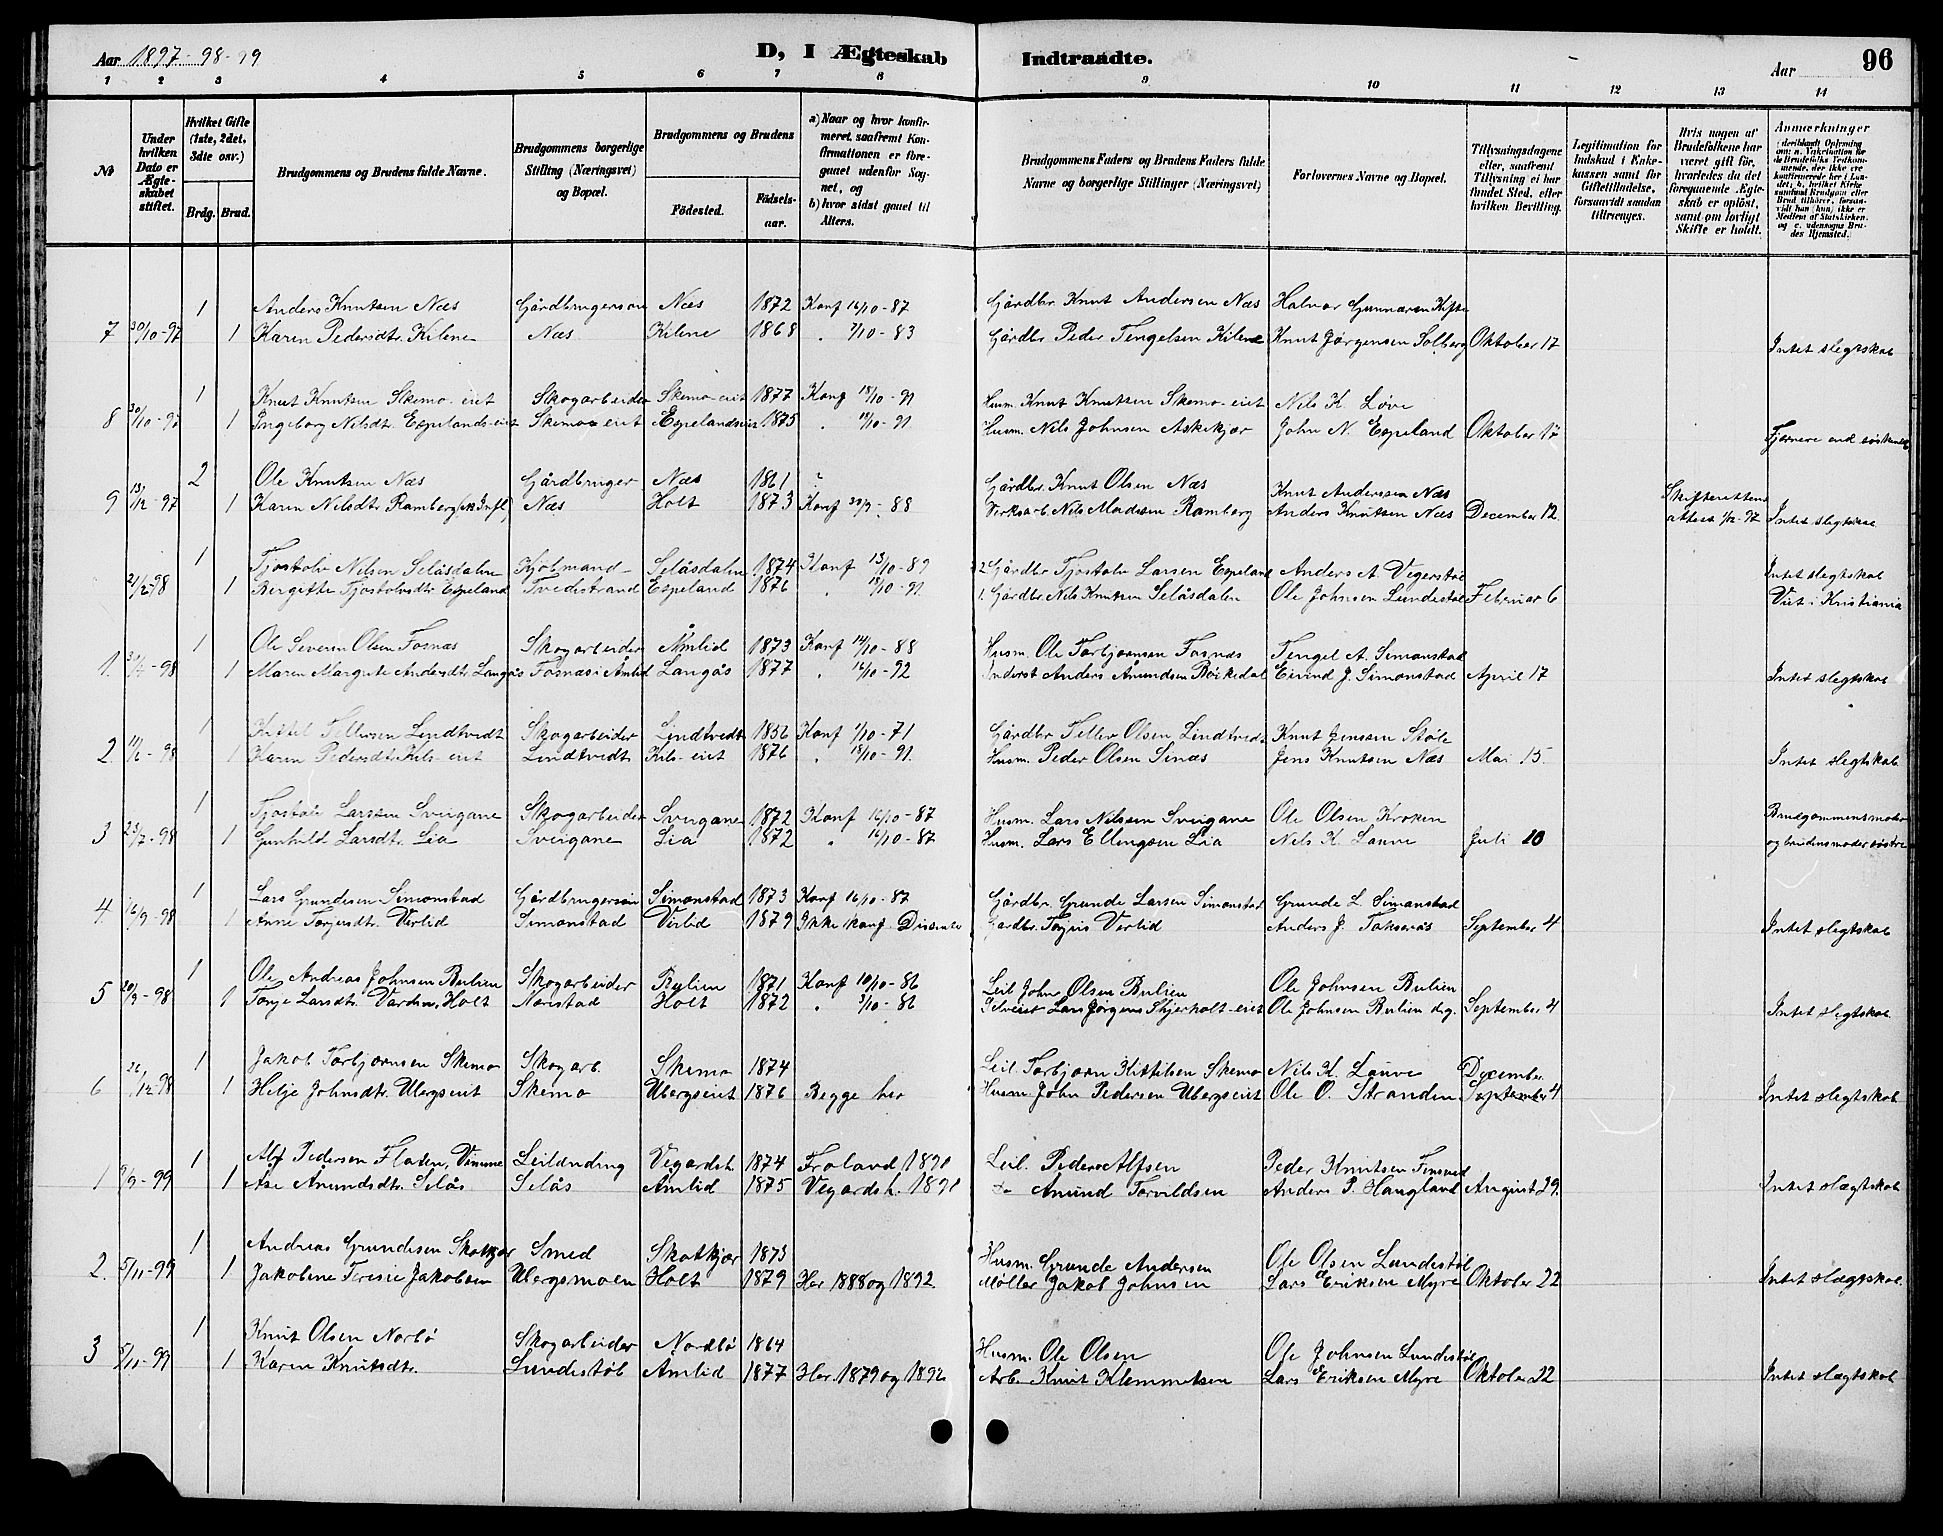 Aar 1897-98-99
D, I Ægteskab Indtraadte.
Aar
96
1 2 3 4 5 6 7 8 9 10 11 12 13 14
№
Under hvilken Dato er Ægteskabet stiftet.
Hvilket Gifte (1ste, 2det, 3die osv.)
Brdg. Brud.
Brudgommens og Brudens fulde Navne.
Brudgommens borgerlige Stilling (Næringsvei) og Bopæl.
Brudgommens og Brudens
Fødested.
Fødselsaar.
a) Naar og hvor konfirmeret, saafremt Konfirmationen er foregaaet udenfor Sognet, og
b) hvor sidst gaaet til Alters.
Brudgommens Faders og Brudens Faders fulde Navne og borgerlige Stillinger (Næringsvei)
Forlovernes Navne og Bopæl.
Tillysningsdagene eller, saafremt Tillysning ei har fundet Sted, efter hvilken Bevilling.
Legitimation for Indskud i Enkekassen samt for Giftetilladelse, forsaavidt saadan tiltrænges.
Hvis nogen af Brudefolkene har været gift før, hvorledes da det foregaaende Ægteskab er opløst, samt om lovligt Skifte er holdt.
Anmærkninger
1 Anders Knutsen Næs Gårdbrugersøn Næs 1872 Konf 16/10-87 Gårdbr Knut Andersen Næs Halvor Gunnarsen
7 30/10-97 1 Karen Pedersdtr. Kilene Næs Kilene 1868 " 7/10-83 Gårdbr. Peder Tengelsen Kilene Knut Jørgensen Solberg Oktober 17 Intet slegtskab
1 Knut Knutsen Skemo-eiet Skogarbeider Skemo-eiet 1877 Konf 18/10-91 Husm. Knut Knutsen Skemo-eiet Nils K. Løve
8 30/10-97 1 Ingeborg Nilsdt. Espelands-eiet Skemo-eiet Espelandseiet 1875 " 18/10-91 Husm. Nils Johnsen Askekjær John N. Espeland Oktober 17 Fjernere end søskende
2 Ole Knutsen Næs Gårdbruger Næs 1861 " Gårdbr. Knut Olsen Næs Knut Andersen Næs Skifterettens
9 13/12-97 1 Karen Nilsdt Ramberg Næs Holt 1873 Konf 30/9-88 Verksarb. Nils Madsen Ramberg Anders Knutsen Næs December 12 attest 1/12-97 Intet slegtska
1 Tjostolv Nilsen Selåsdalen Kjøbmand Selåsdalen 1874 Konf 13/10-89 2 Gårdbr Tjostolv Larsen Espeland Anders A Vegerstøl Intet slegtskab
21/2-98 1 Bergitte Tjostolvsdtr Espeland Tvedestrand Espeland 1876 " 18/10-91 1. Gårdbr. Nils Knutsen Selåsdalen Ole Johnsen Lundestøl Februar 6 Viet i Kristiania
1 Ole Severin Olsen Fosnæs Skogarbeider Åmlid 1873 Konf 14/10-88 Husm. Ole Torbjørnsen Fosnæs Tengel A. Simonstad
1. -98 1 Maren Margrete Andersdtr Langås Fosnæs i Åmlid Langås 1877 " 16/10-92 Inderst Anders Åmundsen Böikedal Eivind J. Simonstad April 17 Intet slegtskab
1 Kittel Tellevsen Lindtvedt Skogarbeider Lindtvedt 1856 Konf 1/10-71 Gårdbr Tellev Olsen Lindtvedt Knut Jenssen Støle
2 11/6-98 1 Karen Pedersdt. Kils-eiet Lindtvedt Kils-eiet 1876 " 18/10-91. Husm. Peder Olsen Sinæs Jens Knutsen Næs Mai 15. Intet slegtskab
1 Tjostolv Larsen Sveigane Skogarbeider Sveigane 1872 Konf 16/10-87 Husm. Lars Nilssen Sveigane Ole Olsen Kroken Brudgommens moder
3 23/7-98 1 Gunhild Larsdt. Lia Sveigane Lia 1872 " 16/10-87 Husm. Lars Ellingsen Lia Nils K. Lauve Juli 10 og brudens moder søstre
1 Lars Grundesen Simonstad Gårdbrugersøn Simonstad 1873 Konf 16/10-87 Gårdbr. Grunde Larsen Simonstad Grunde L. Simonstad
4 16/9-98 1 Anne Torjusdtr. Verlid Simonstad Verlid 1879 Ikke konf. Dissenter Gårdbr. Torjus Verlid Anders J. Takserås September 4 Intet slegtskab
1 Ole Andreas Johnsen Bulien Skogarbeider Bulien 1871 Konf 10/10-86 Leil. John Olsen Bulien Ole Johnsen Bulien
5 20/9-98 1 Tonje Larsdtr. Vardsn, Holt Nævestad Holt 1872 " 3/10-86 Lars Jørgens Skjerholt-eiet Ole Johnsen Bulien d.y. September 4 Intet slegtskab
1 Jakob Torbjørnsen Skemo Skogarb. Skemo 1874 Leil Torbjørn Kittilsen Skemo Nils K. Lauve December
6 26/12-98 1 Helje Johnsdtr. Ubergseiet Skemo Ubergseiet 1876 Begge her Husm John Pedersen Ubergseiet Ole O. Stranden September 4 Intet slegtskab
1 Alf Pedersen Flaten, Vimme Leilænding Vegårdsh. 1874 Froland 1890 Leil. Peder Alfsen Peder Knutsen
1 9/9-99 1 Åse Ånundsdtr. Selås Selås Åmlid 1875 Vegårdsh. 1891 do Ånund Torvildsen Anders P. Haugland August 29. Intet slægtskab
1 Andreas Grundesen Skotkjær Smed Skotkjær 1873 Husm. Grunde Andersen Ole Olsen Lundestøl
2. 5/11-99 1 Jakobine Teresie Jakobsen Ubergsmoen Holt 1879 Her 1888 og 1892 Møller Jakob Johnsen Lars Eriksen Myre Oktober 22 Intet slægtskab
1 Knut Olsen Norbø Skogarbeider Nordbø 1864 Husm. Ole Olsen Ole Johnsen Lundestøl
3 5/11-99 1 Karen Knutsdtr. Lundestøl Åmlid 1877 Her. 1879 og 1892 Arb. Knut Klemmetsen Lars Eriksen Myre Oktober 22 Intet slægtskab